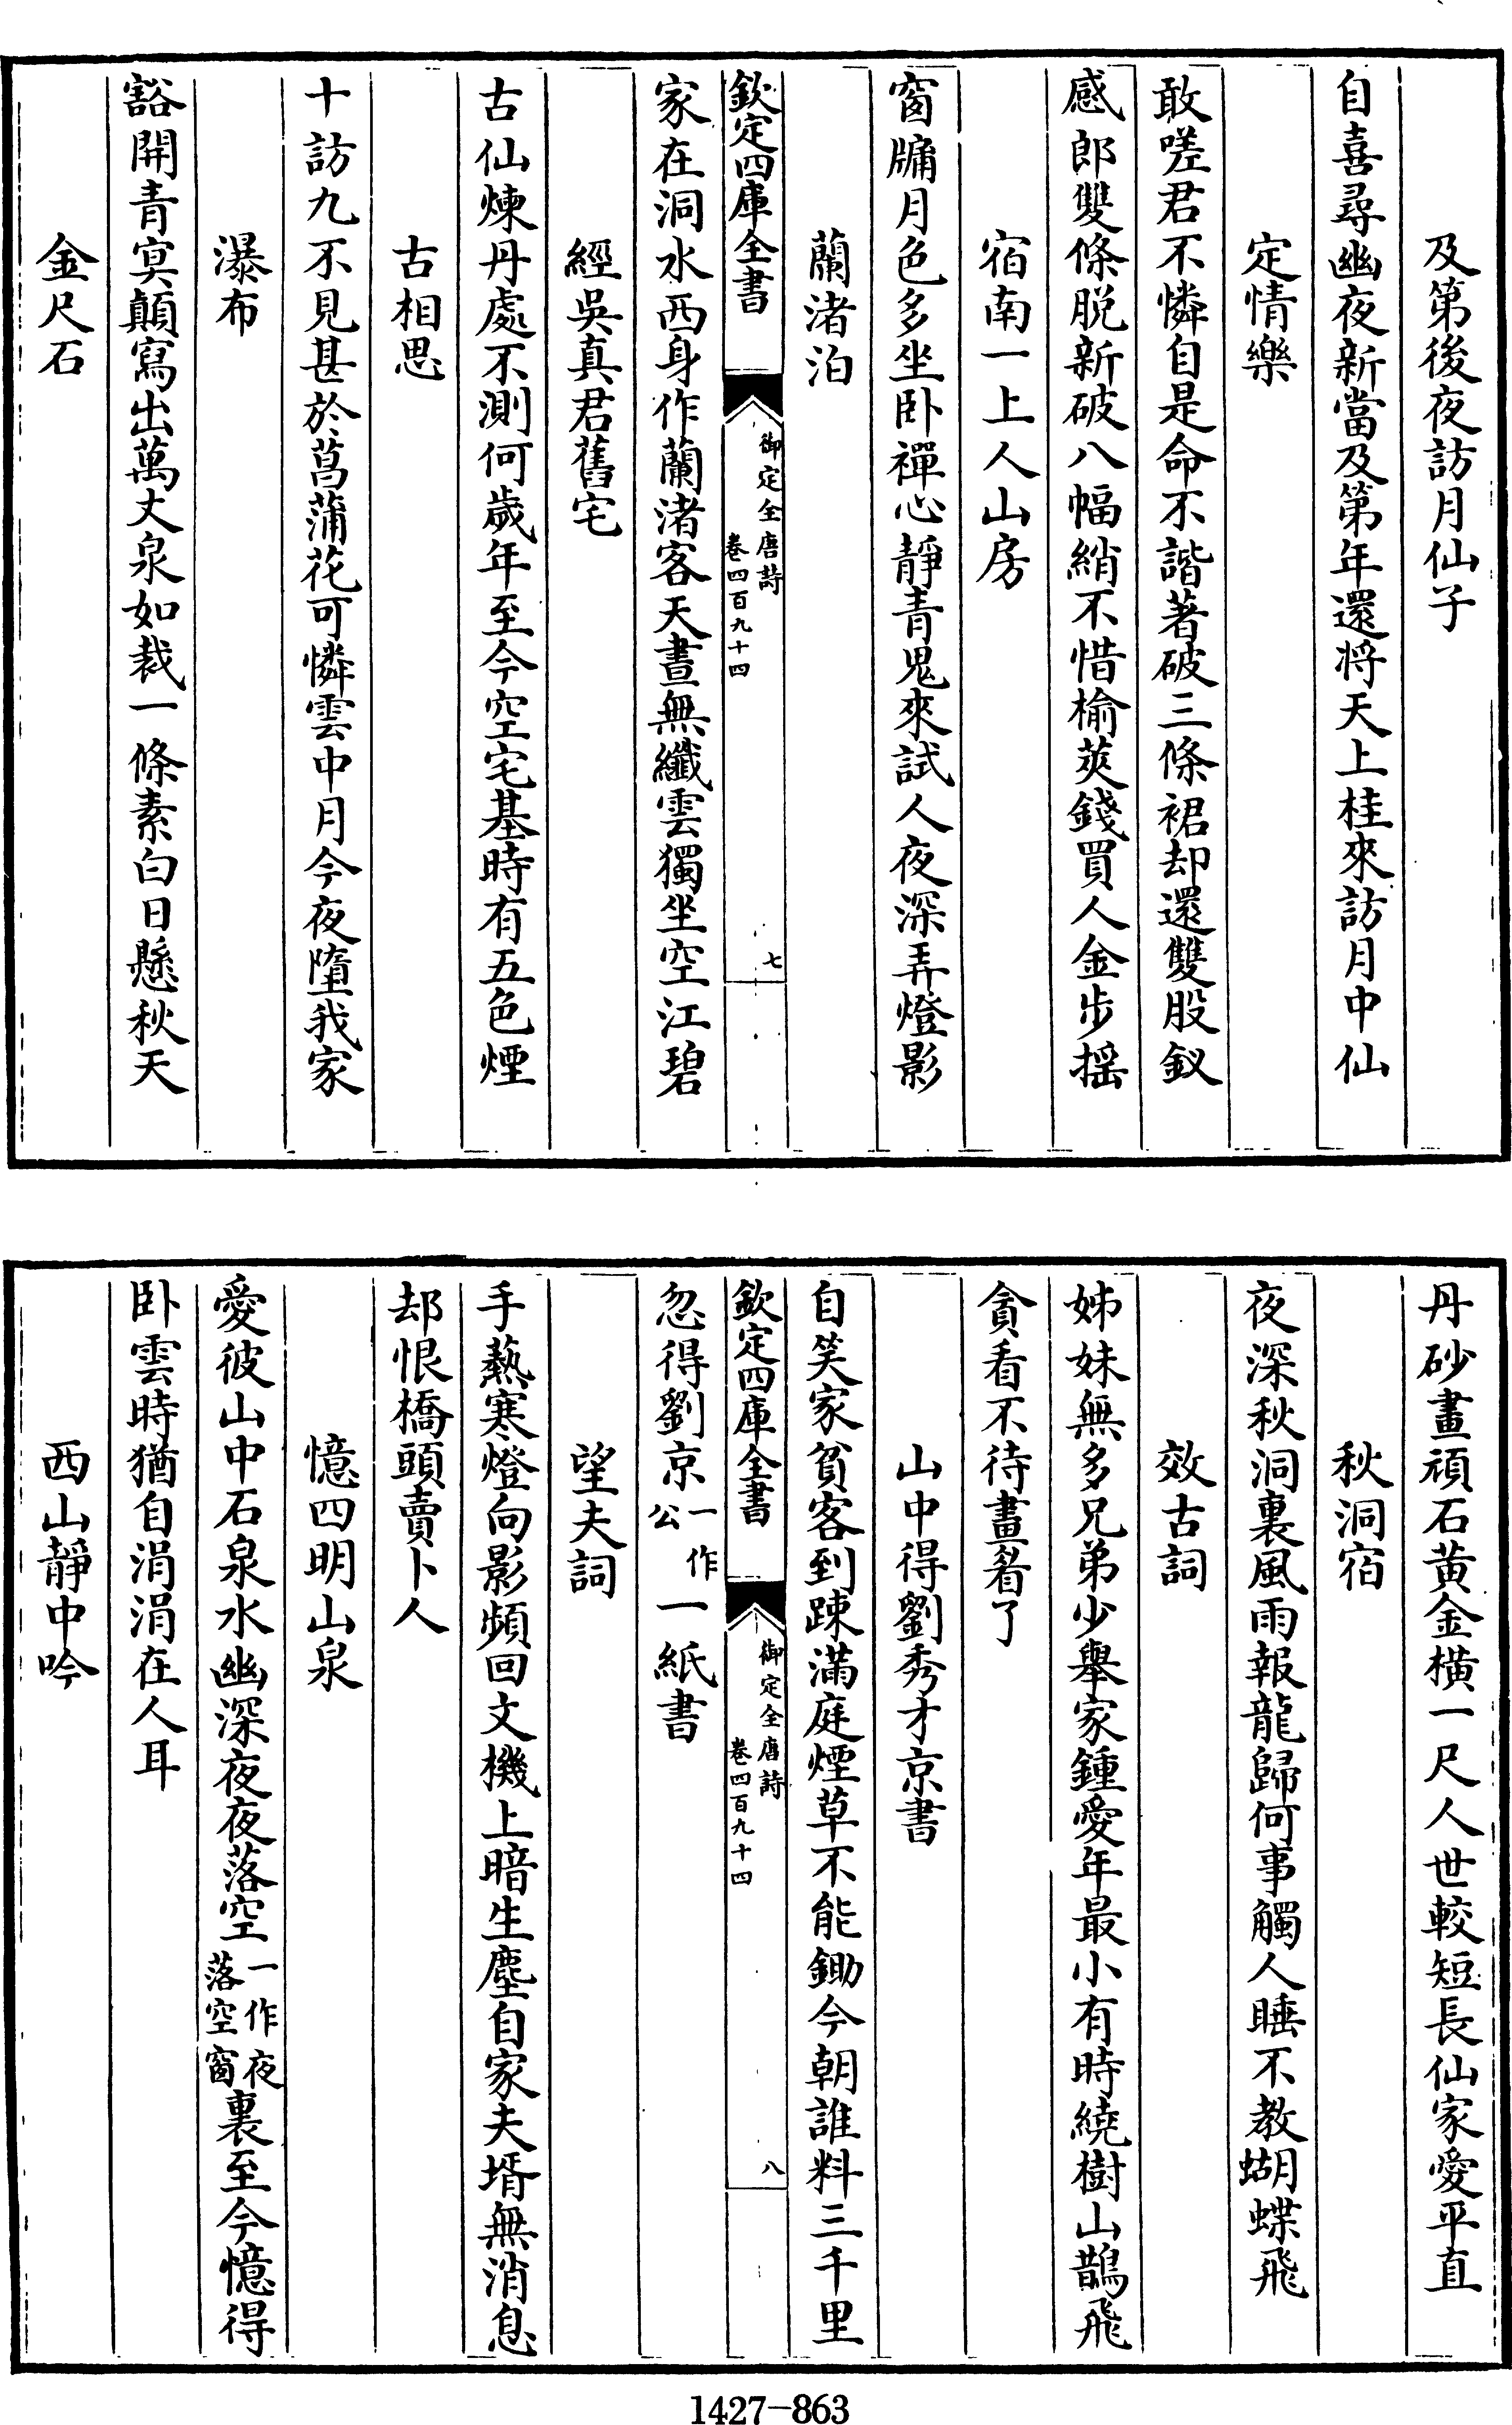 及第後夜訪月仙子
自喜尋幽夜新當及第年還將天上桂來訪月中仙
定情樂
敢嗟君不憐自是命不諧著破三條裾却還雙股釵
感郎雙條脱新破八幅綃不惜榆莢錢買人金步摇
宿南一上人山房
窗牖月色多坐卧禪心靜青鬼來試人夜深弄燈影
蘭渚泊
欽定四庫全書
御定全唐詩
卷四百九十四
七
家在洞水西身作蘭渚客天晝無纖雲獨坐空江碧
經吳真君舊宅
古仙煉丹處不測何歲年至今空宅基時有五色煙
古相思
十訪九不見甚於菖蒲花可憐雲中月今夜墮我家
瀑布
豁開青冥顛寫出萬丈泉如裁一條素白日懸秋天
金尺石
丹砂畫頑石黄金横一尺人世較短長仙家愛平直
秋洞宿
夜深秋洞裏風雨報龍歸何事觸人睡不教蝴蝶飛
效古詞
姊妹無多兄弟少舉家鍾愛年最小有時繞樹山鵲飛
貪看不待畫眉了
山中得劉秀才京書
自笑家貧客到踈滿庭煙草不能鋤今朝誰料三千里
欽定四庫全書
御定全唐詩
卷四百九十四
八
忽得劉京一作公一紙書
望夫詞
手爇寒燈向影頻回文機上暗生塵自家夫壻無消息
却恨橋頭賣卜人
憶四明山泉
愛彼山中石泉水幽深夜夜落空一作夜落空窗裏至今憶得
卧雲時猶自涓涓在人耳
西山靜中吟
1427-863